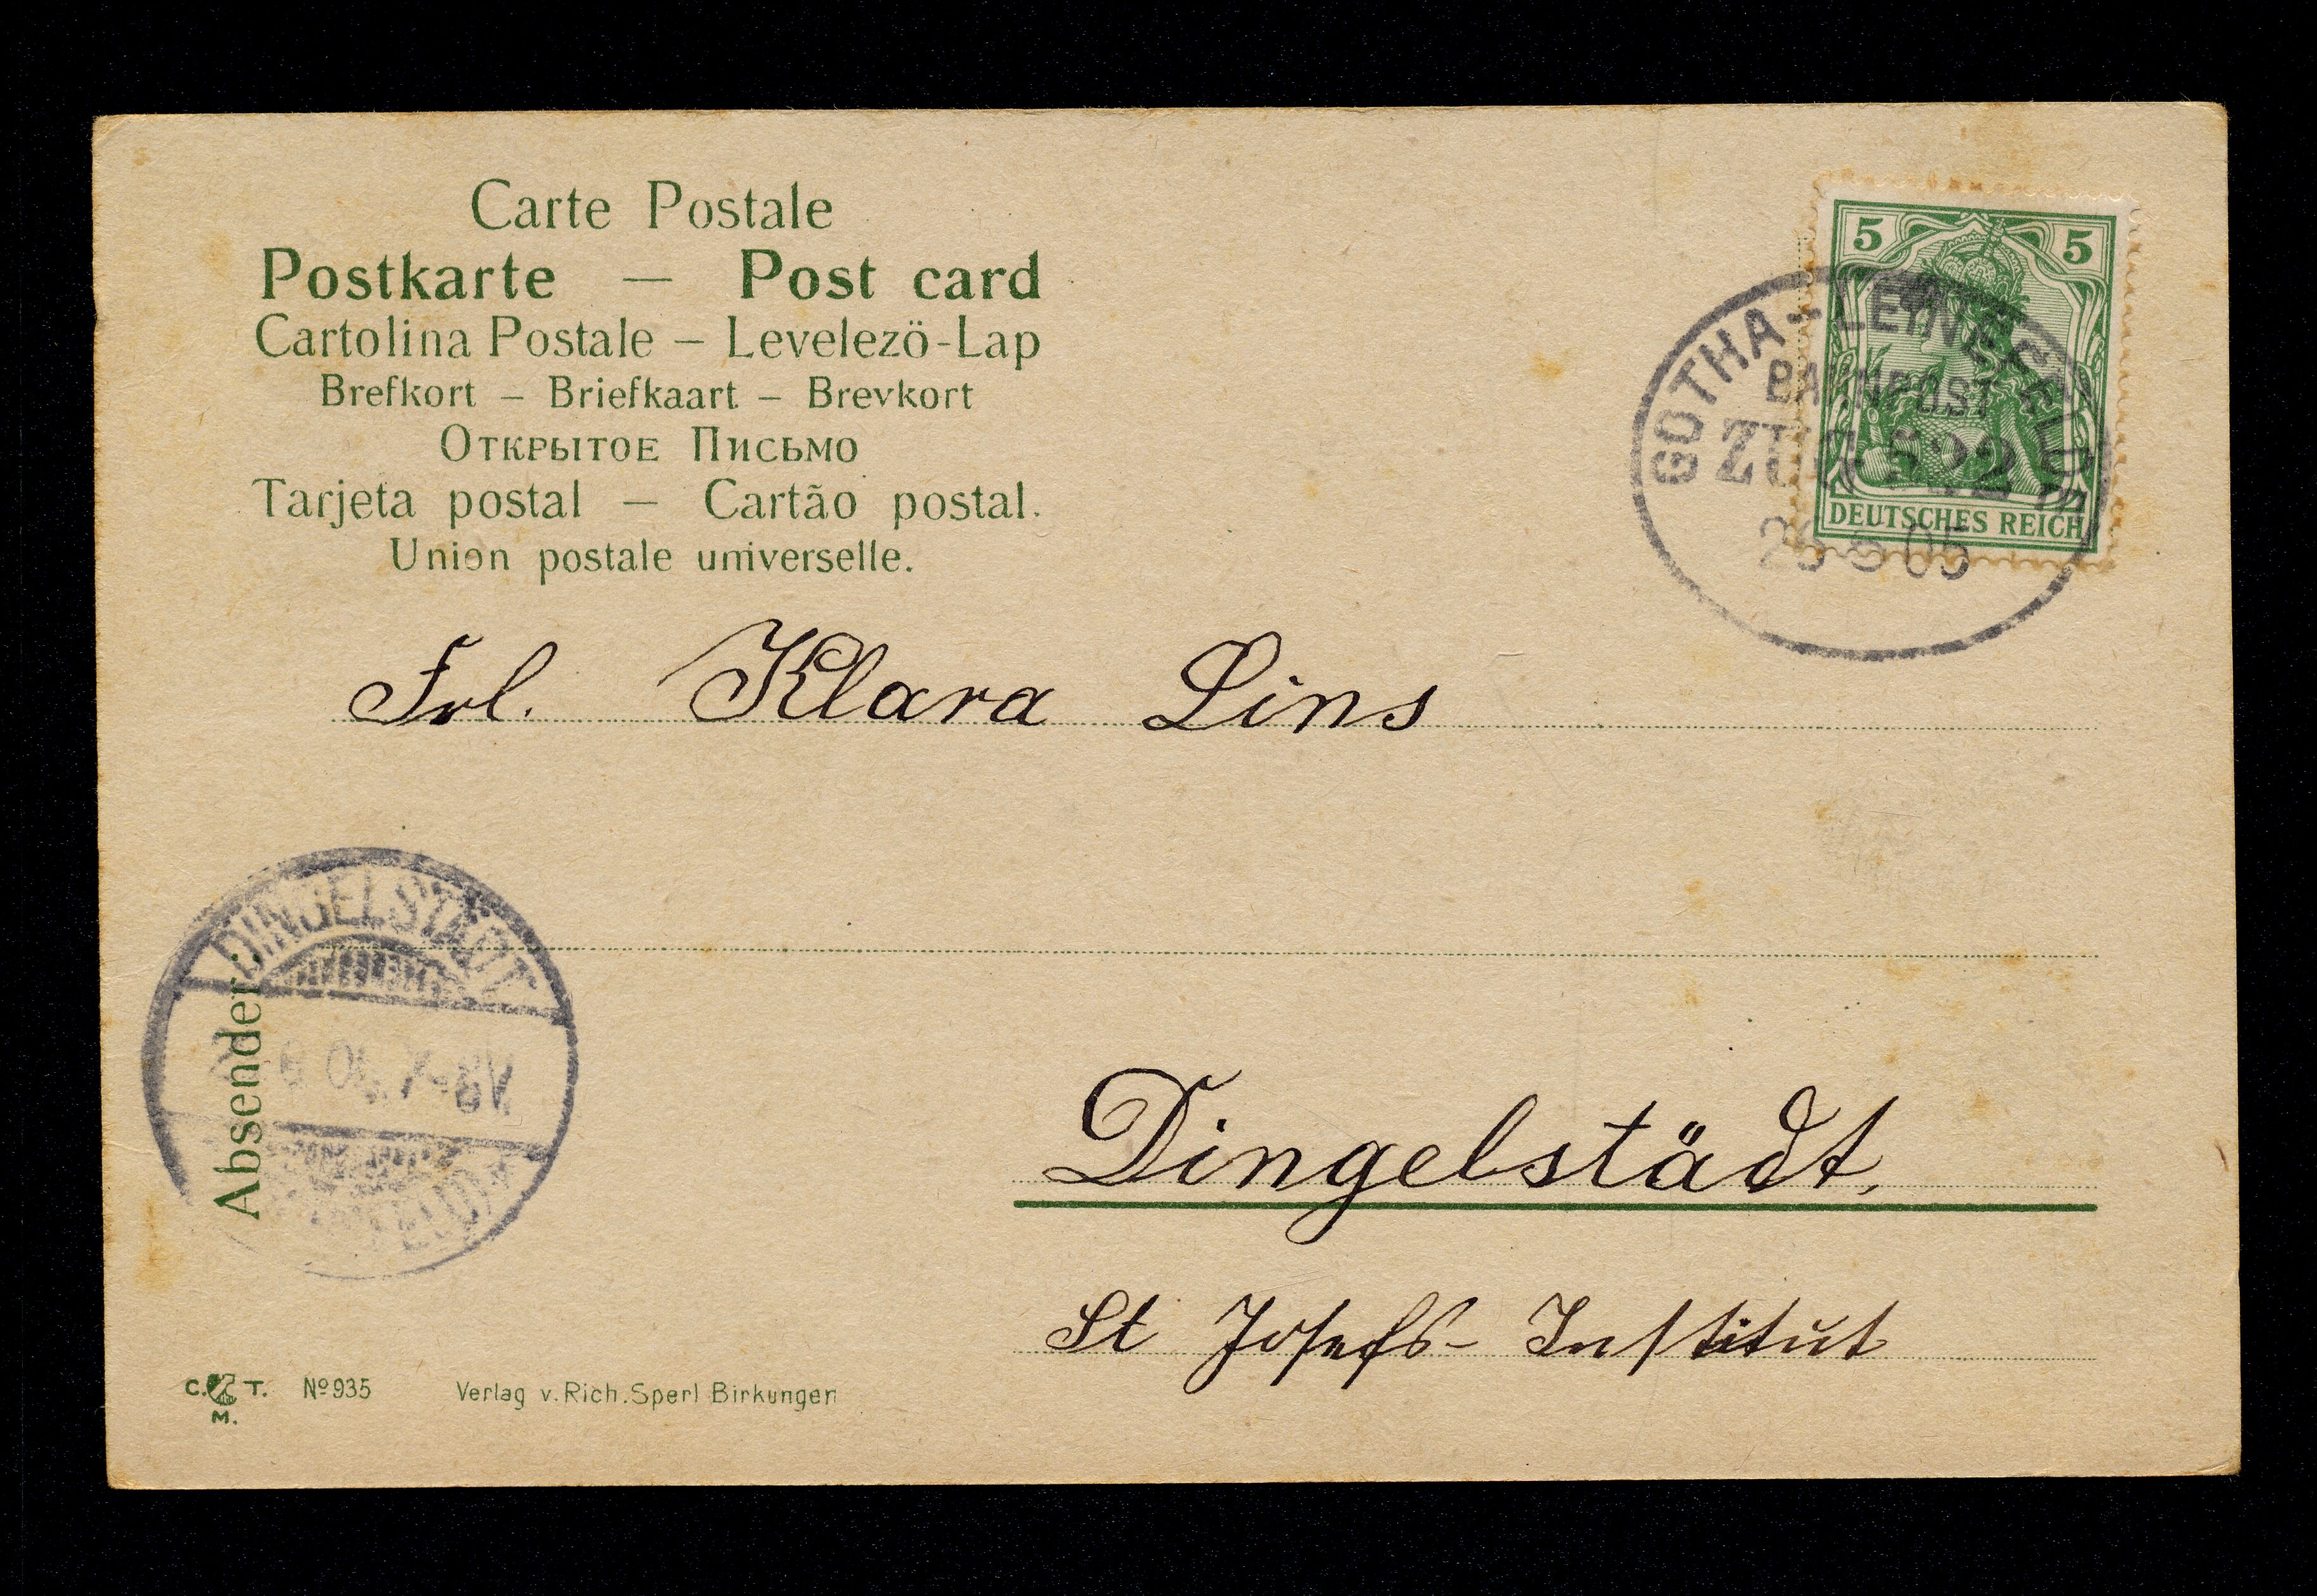 Carte Postale
Postkarte — Post card
Cartolina Postale – Levelezö-Lap
Brefkort – Briefkaart – Brevkort
Открытое Письмо
Tarjeta postal — Cartão postal.
Union postale universelle.
5 5
DEUTSCHES REICH
GOTHA–LEINEFELDE
BAHNPOST
ZUG 522
05
Frl. Klara Lins
DINGELSTÄDT
7-8V.
Absender:
Dingelstädt.
St Josefs- Institut
C. T.
M.
No 935
Verlag v. Rich. Sperl Birkungen